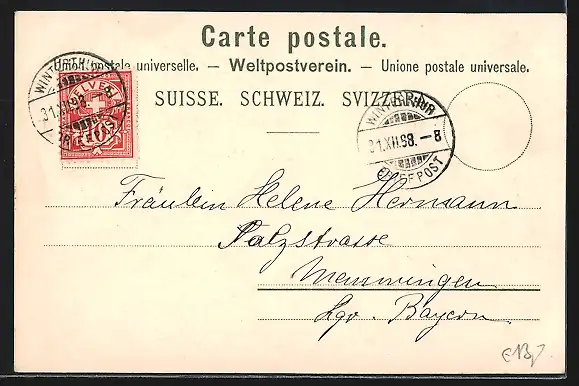 Carte postale.
Union postale universelle. — Weltpostverein. — Unione postale universale.
SUISSE. SCHWEIZ. SVIZZERA.
WINTERTHUR
31.XII.98. – 8
BRIEFPOST
HELVETIA
10
WINTERTHUR
31.XII.98. – 8
BRIEFPOST
Fräulein Helene Hermann
Salzstrasse
Memmingen
Kgr. Bayern